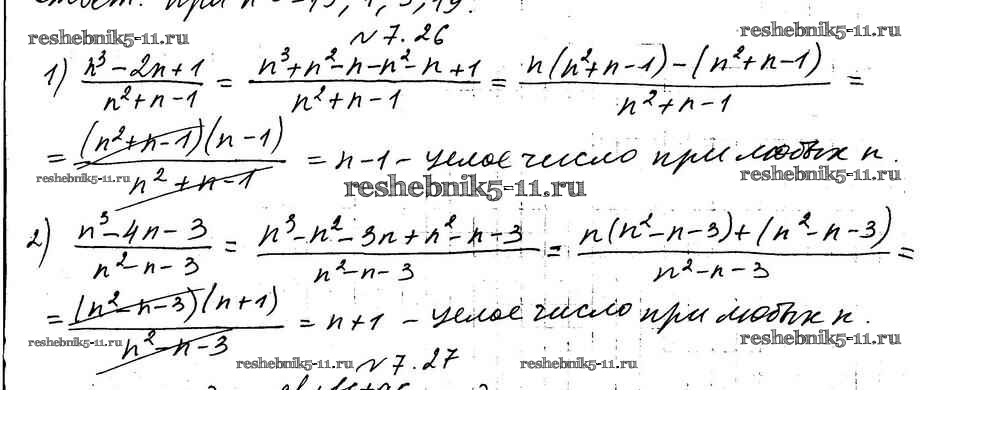 Ответ: при n = -13, 1, 3, 19.
reshebnik5-11.ru № 7.26 reshebnik5-11.ru
1) (n³-2n+1)/(n²+n-1) = (n³+n²-n-n²-n+1)/(n²+n-1) = (n(n²+n-1)-(n²+n-1))/(n²+n-1) =
= ((n²+n-1)(n-1))/(n²+n-1) = n-1 - целое число при любых n.
reshebnik5-11.ru reshebnik5-11.ru reshebnik5-11.ru
2) (n³-4n-3)/(n²-n-3) = (n³-n²-3n+n²-n-3)/(n²-n-3) = (n(n²-n-3)+(n²-n-3))/(n²-n-3) =
= ((n²-n-3)(n+1))/(n²-n-3) = n+1 - целое число при любых n.
reshebnik5-11.ru reshebnik5-11.ru
reshebnik5-11.ru № 7.27 reshebnik5-11.ru